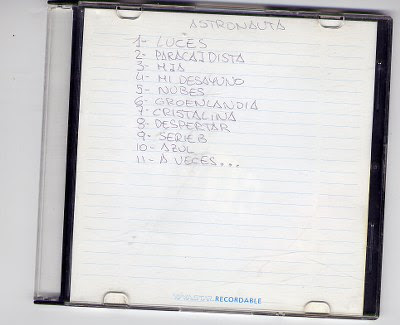 ASTRONAUTA
1- LUCES
2- PARACAIDISTA
3- MIA
4- MI DESAYUNO
5- NUBES
6- GROENLANDIA
7- CRISTALINA
8- DESPERTAR
9- SERIE B
10- AZUL
11- A VECES...
RECORDABLE